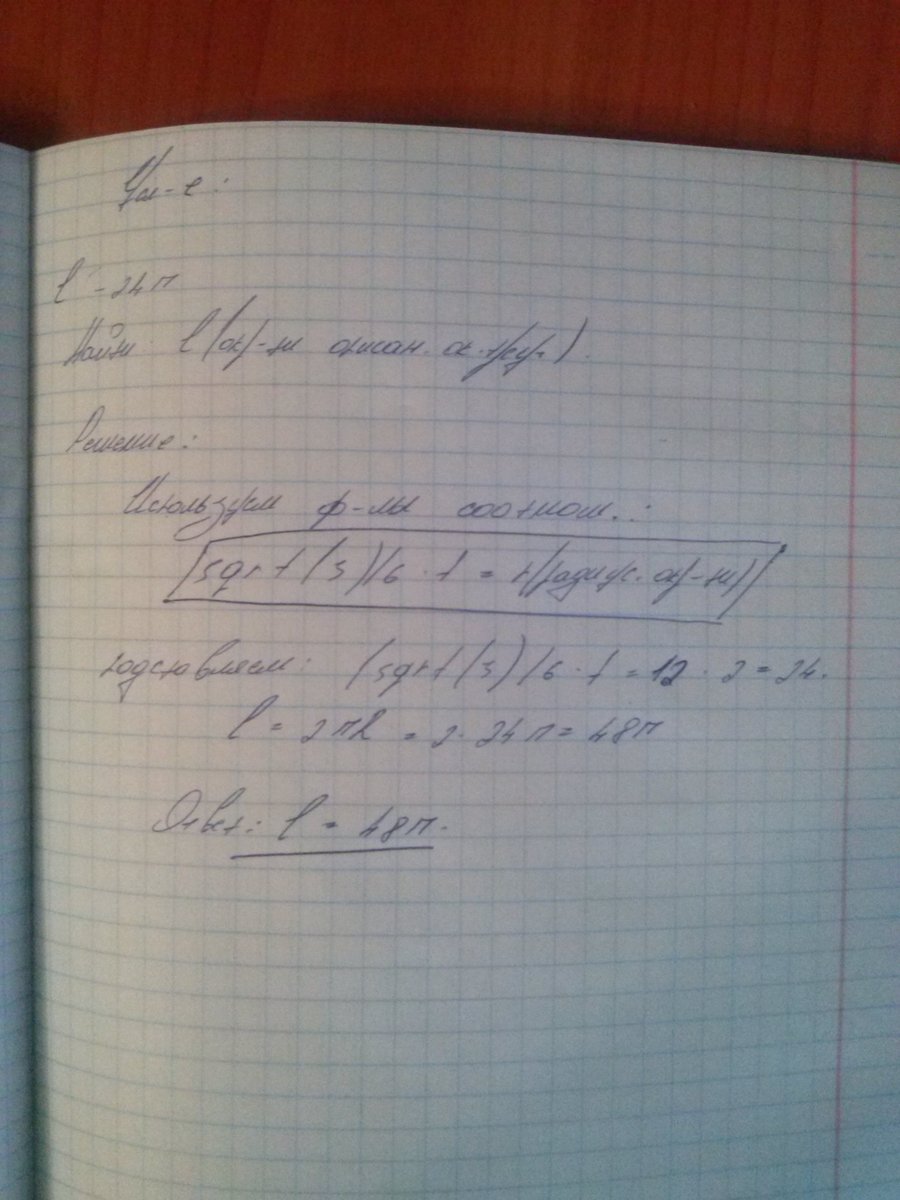 Усл-е:
l - 24π
Найти l (окр-ти описан. ок.
Решение:
Используем ф-лы соотнош.:
(sqrt(3))/6 · t = r(радиус. окр-ти)
подставляем: (sqrt(3))/6 · t = 12 · 2 = 24.
l = 2πR = 2 · 24π = 48π
Ответ: l = 48π.